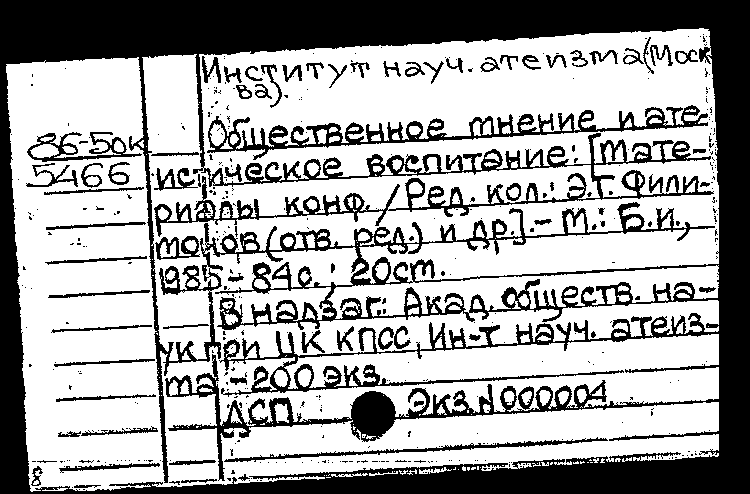 Институт науч. атеизма (Моск
ва).
86-50к Общественное мнение и ате-
5466 истическое воспитание: [Мате-
риалы конф. / Ред. кол.: Э.Г. Фили-
монов (отв. ред.) и др.]. - М.: Б.и.,
1985. - 84 с.; 20 ст.
В надзаг.: Акад. обществ. на-
ук при ЦК КПСС, Ин-т науч. атеиз-
ма - 200 экз.
ДСП. Экз. N 000004.